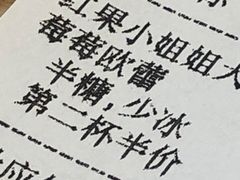 红果小姐姐大
莓莓欧蕾
半糖,少冰
第二杯半价